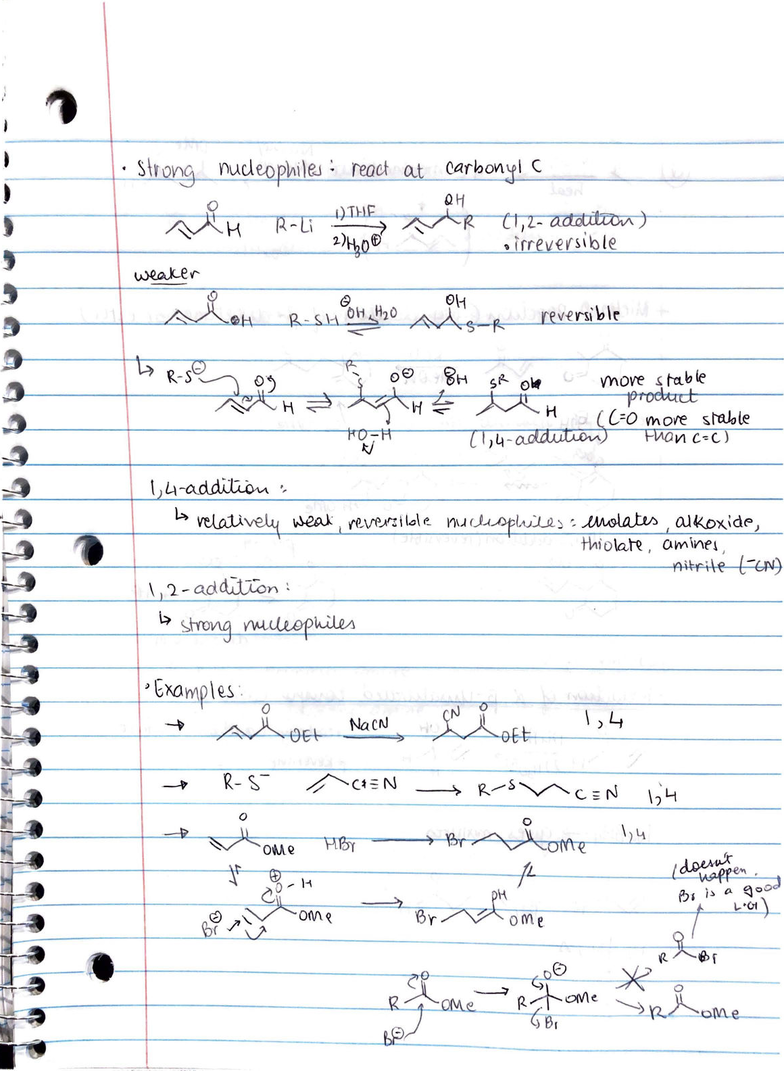 · Strong nucleophiles: react at carbonyl C
O H R-Li 1) THF 2) H₃O⊕ OH R (1,2-addition)
• irreversible
weaker
O OH R-SH ⊖OH, H₂O OH S-R reversible
↳ R-S⊖ O H R S O⊖ H ⊖OH SR O H more stable
product
HO-H (1,4-addution) (C=O more stable
than C=C)
1,4-addition:
↳ relatively weak, reversible nucleophiles: enolates, alkoxide,
thiolate, amines,
nitrile (⁻CN)
1,2-addition:
↳ strong nucleophiles
• Examples:
→ O OEt NaCN → CN O OEt 1,4
→ R-S⁻ C≡N → R-S C≡N 1,4
→ O OMe HBr → Br O OMe 1,4
Br⊖ ⊕O-H OMe → Br OH OMe
(doesn't
happen.
Br is a good
O R Br
R O OMe → R O⊖ OMe Br R O OMe
Br⊖